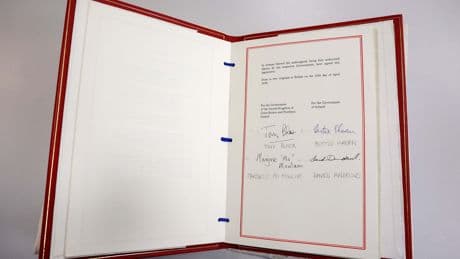 In witness whereof the undersigned, being duly authorised
thereto by the respective Governments, have signed this
Agreement.
Done in two originals at Belfast on the 10th day of April
1998.
For the Government
of the United Kingdom of
Great Britain and Northern
Ireland
For the Government
of Ireland
Tony Blair
TONY BLAIR
BERTIE AHERN
Marjorie "Mo"
Mowlam
MARJORIE MO MOWLAM
DAVID ANDREWS